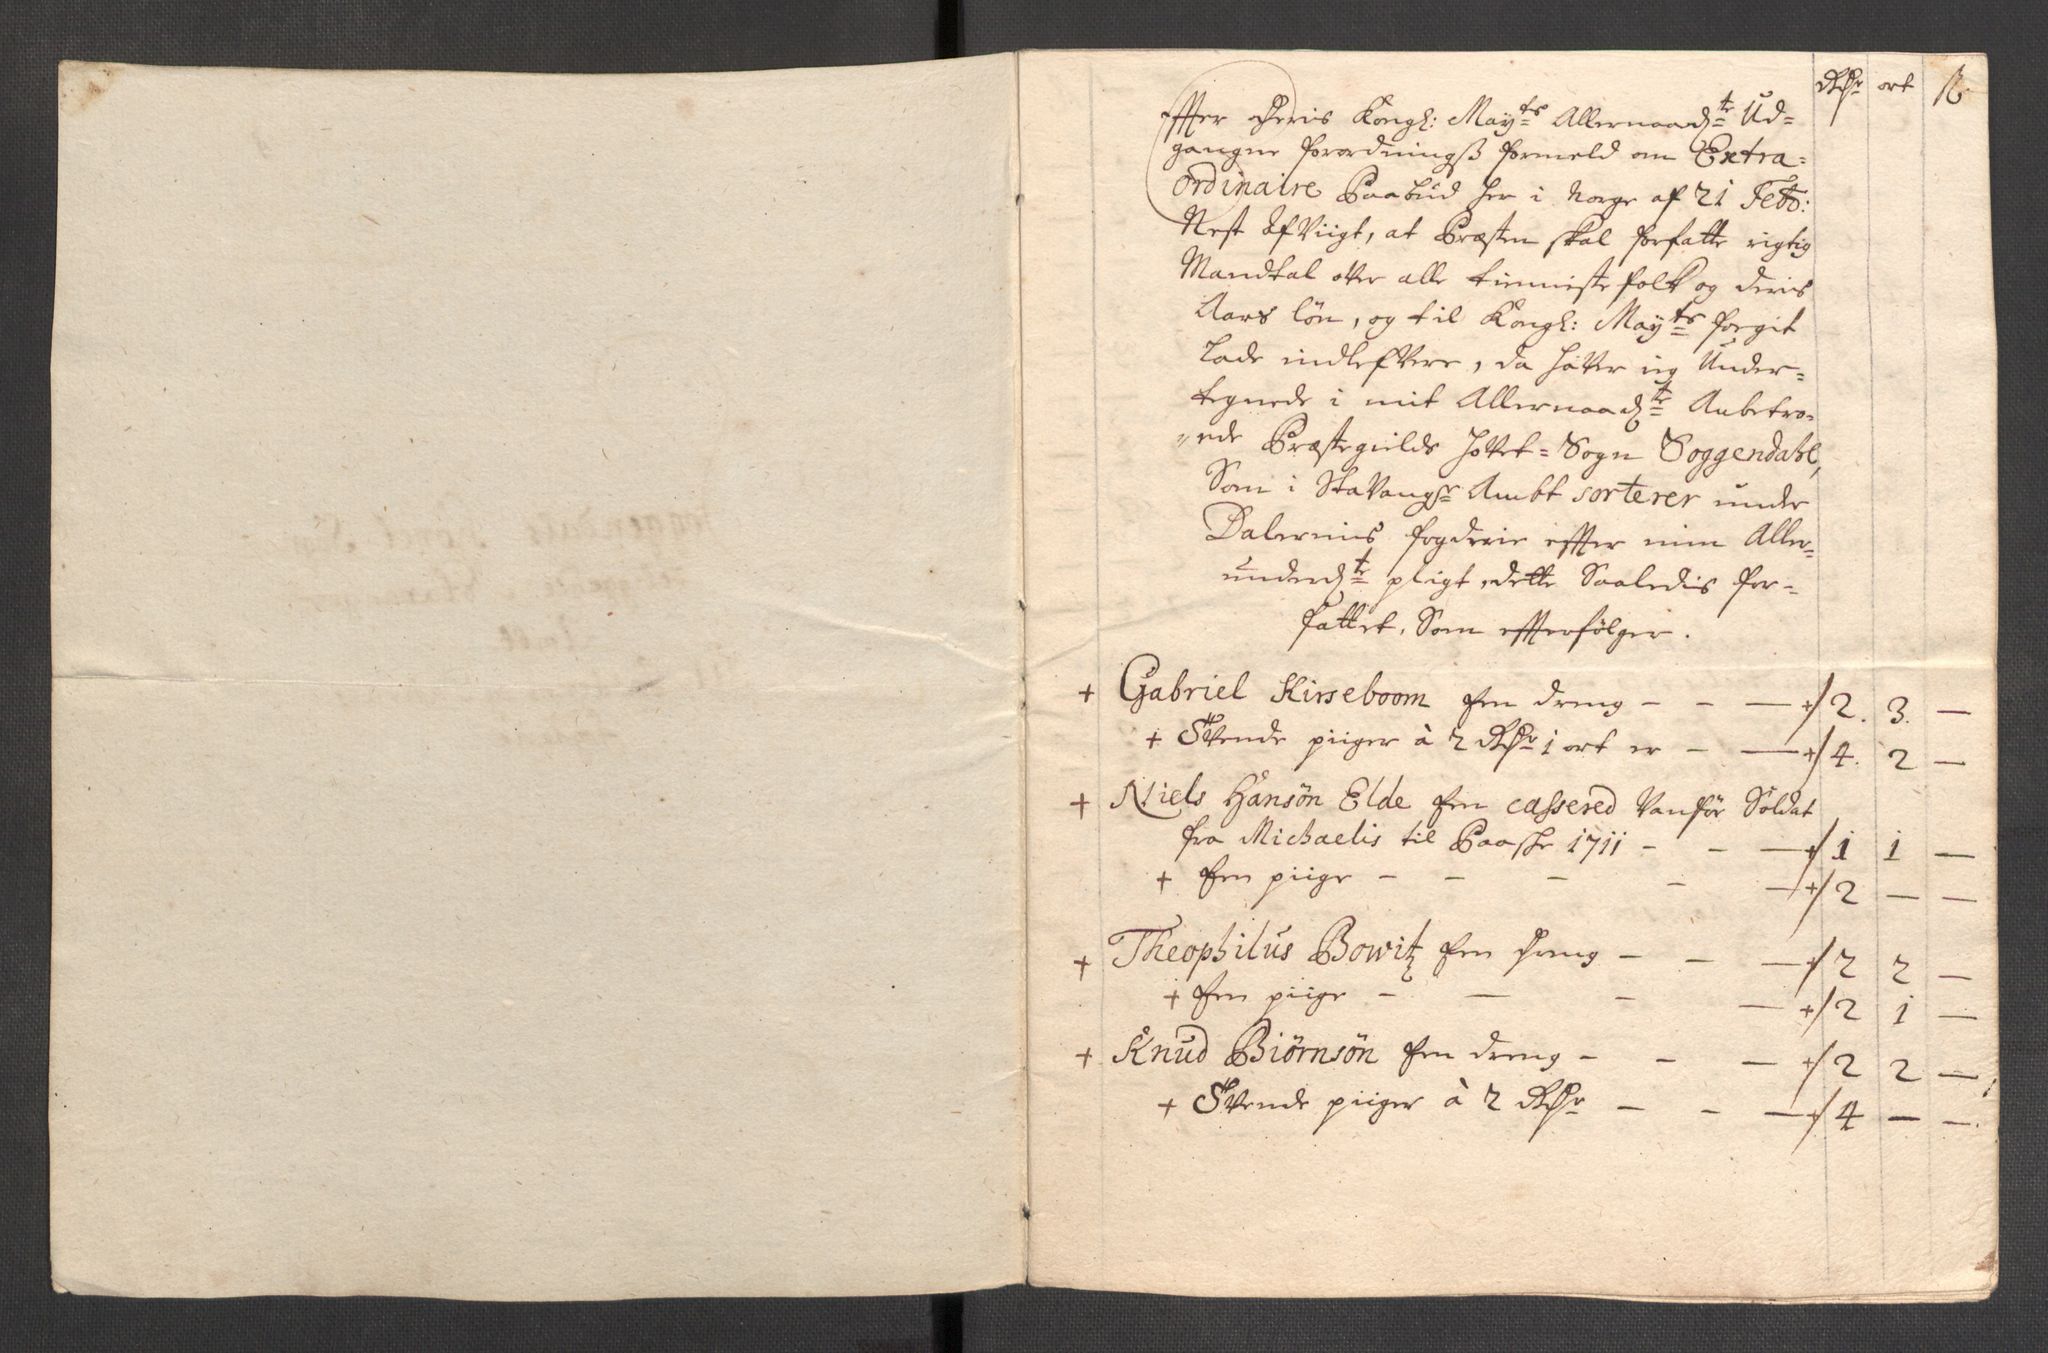 Rdr ort ß
Effter Deris Kongl: Mayts Allernaadte Ud=
gangne forordningß formeld om Extra=
ordinaire Paabud her i Norge af 21 Feb:
Nest Afviigt, at Præsten skal forfatte rigtig
Mandtal over alle tienniste folk og deris
Aars løn, og til Kongl: Mayts fogit
lade indlefvere, da haver ieg Under=
tegnede i mit Allernaadte Anbetro=
ede Præstegields Hovet=Sogn Soggendahl,
Som i Stavangr Ambt sorterer under
Dalernis fogderie effter min Aller=
underdte pligt, dette Saaledis for=
fattet, Som effterfølger.
+ Gabriel Kirseboom Een dreng - - — +/ 2. 3. —
+ Tvende piiger à 2 Rdr 1 ort er - — +/ 4. 2 —
+ Niels Hansøn Elde Een casssered Vanför Soldat
fra Michaelis til Paaske 1711 - - — +/ 1 1 —
+ Een piige - - - - — +/ 2 — —
+ Theophilus Bowitz Een Dreng - - — +/ 2 2 —
+ Een piige - — - — +/ 2 1 —
+ Knud Biörnsön Een dreng - - — +/ 2 2 —
+ Tvende piiger à 2 Rdr - - — +/ 4 — —